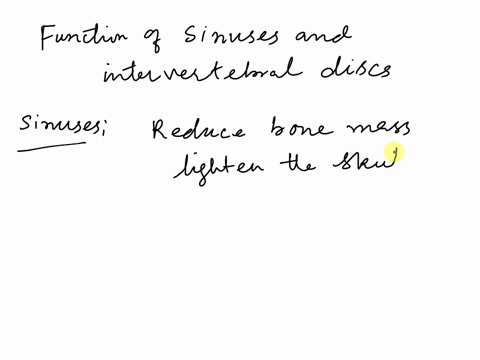 Function of Sinuses and
intervertebral discs
Sinuses; Reduce bone mass
lighten the skul